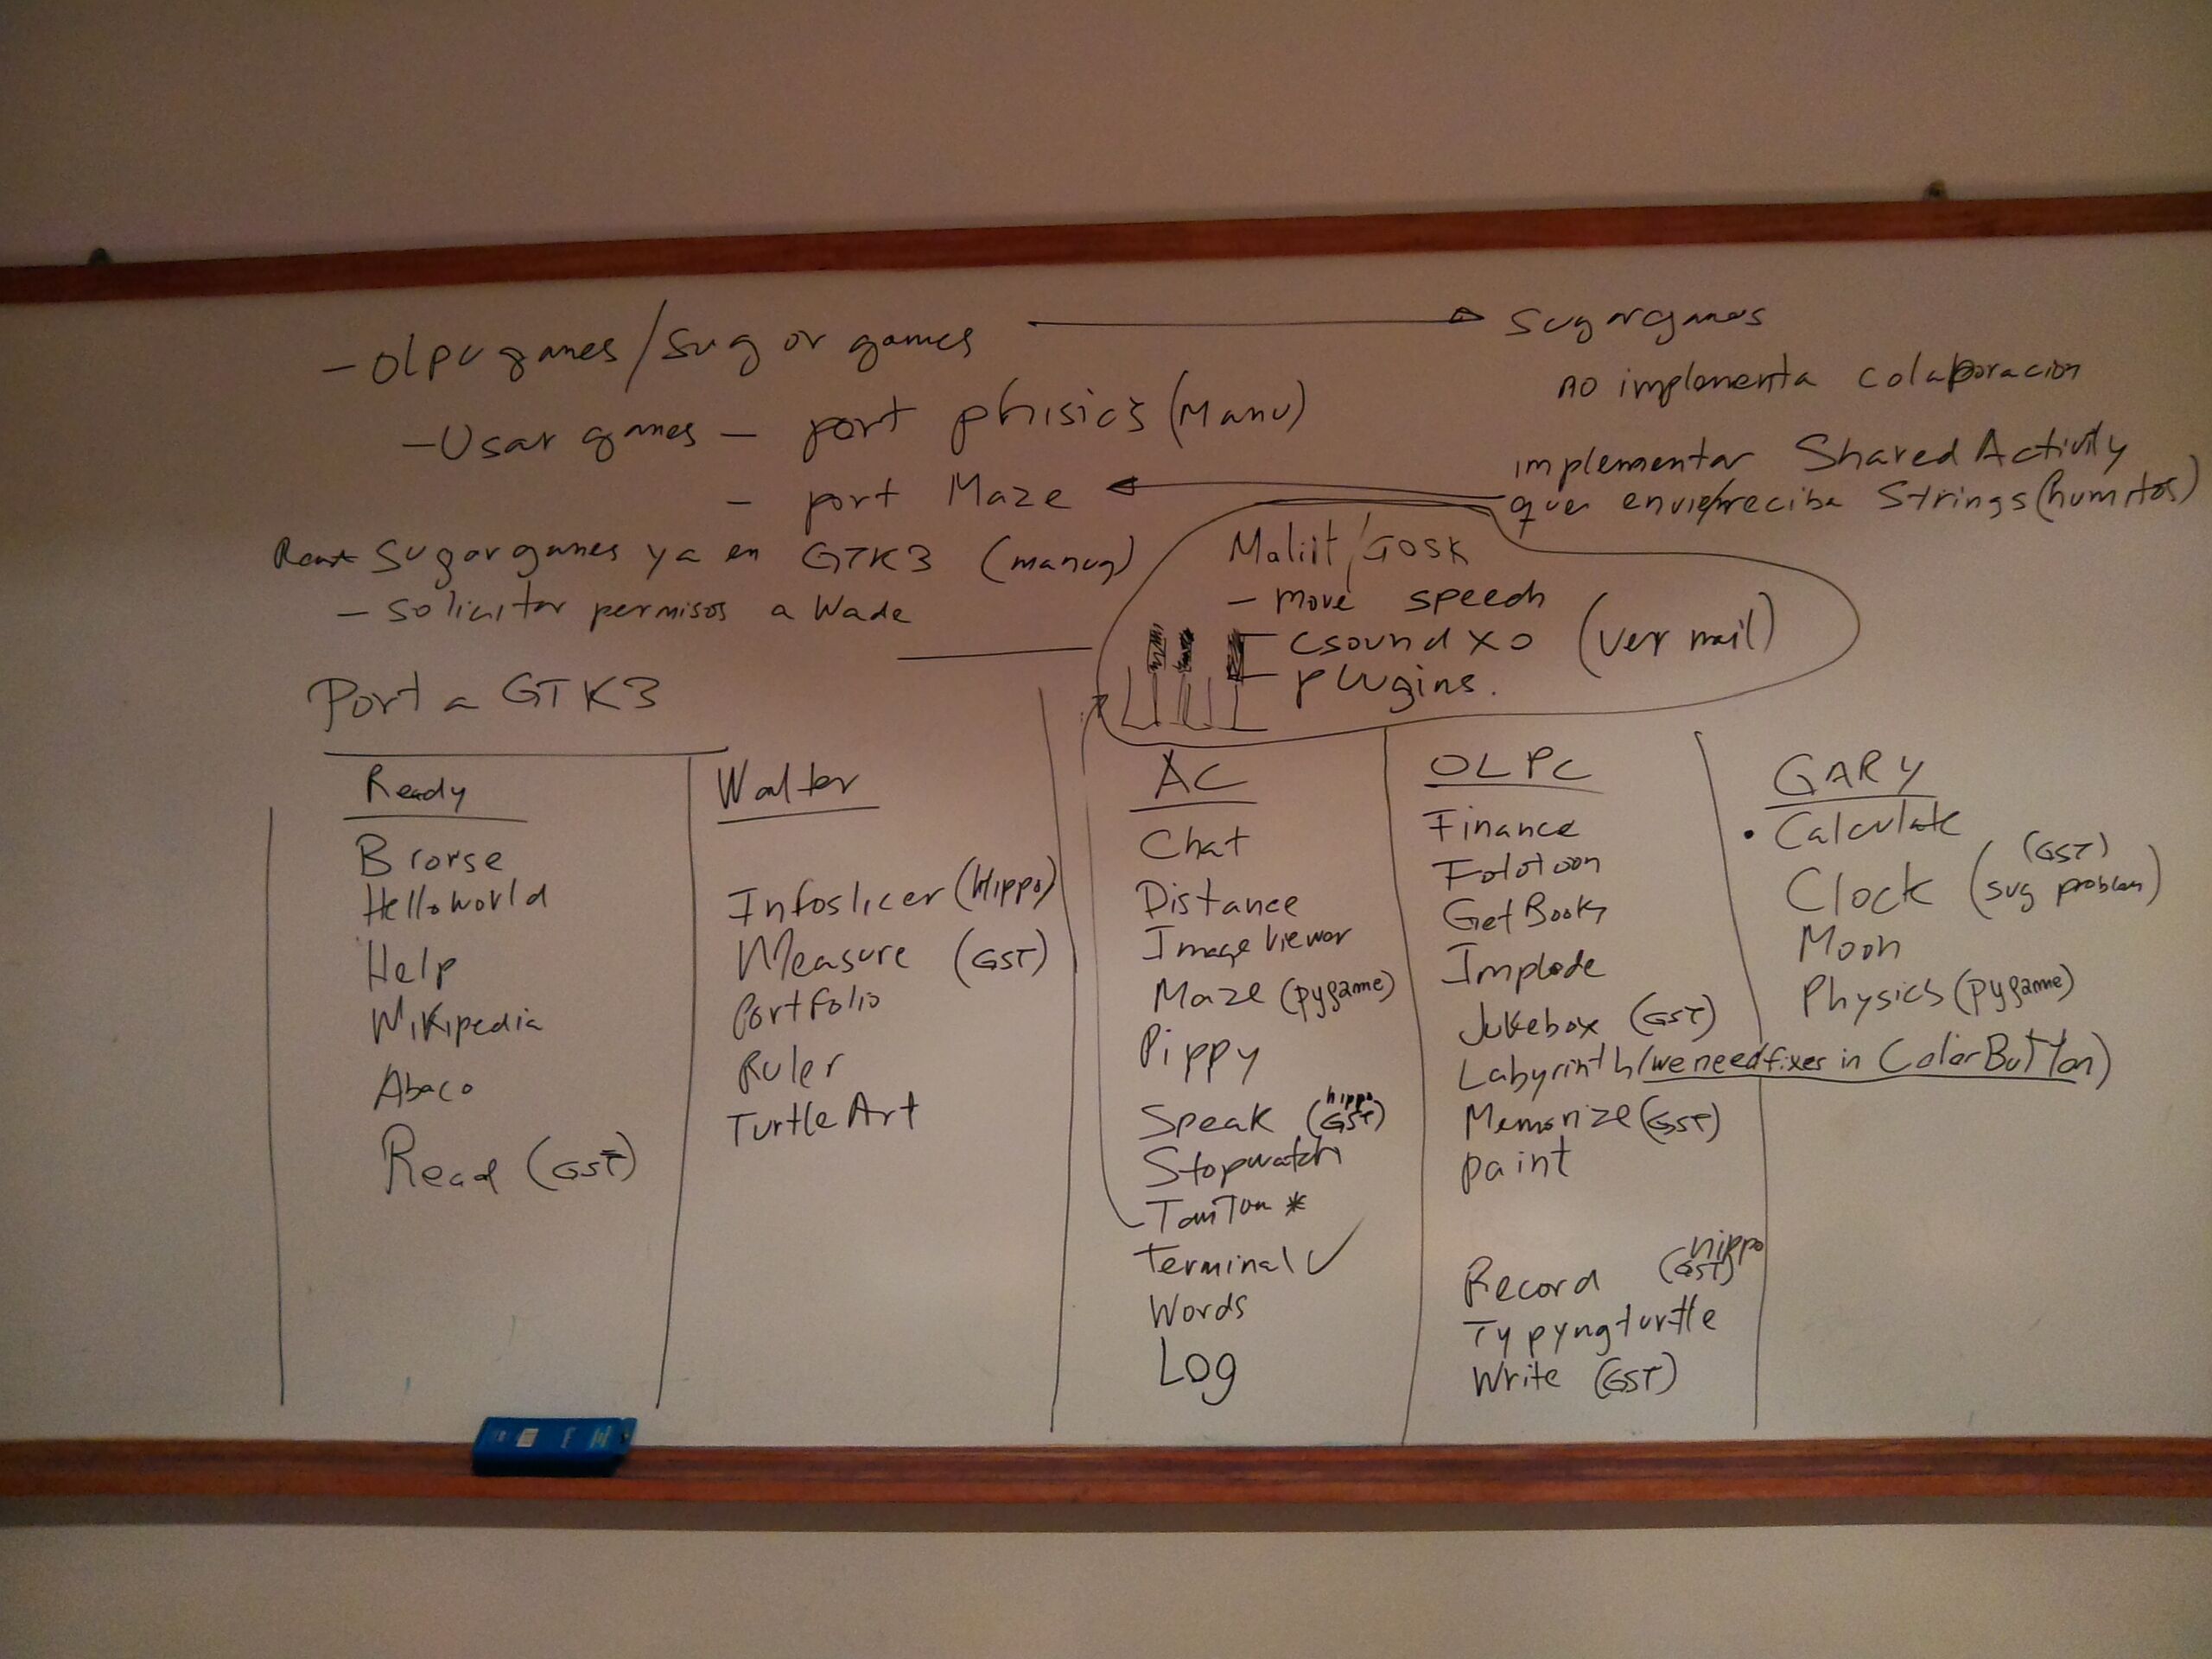 - olpcgames/sugargames
- Usar games - port phisics (Manu)
- port Maze
sugargames ya en GTK3 (manuq)
- solicitar permisos a Wade
sugargames
no implementa colaboracion
implementar Shared Activity
que envie/reciba Strings (humitos)
Maliit/GOSK
- move speech
- csoundxo (ver mail)
- plugins.
Port a GTK3
Ready
Browse
Helloworld
Help
Wikipedia
Abaco
Read (GST)
Walter
Infoslicer (Hippo)
Measure (GST)
Portfolio
Ruler
TurtleArt
AC
Chat
Distance
ImageViewer
Maze (pygame)
Pippy
hippo
Speak (GST)
Stopwatch
TamTam *
Terminal ✓
Words
Log
OLPC
Finance
Fototoon
GetBooks
Implode
Jukebox (GST)
Labyrinth (we need fixes in ColorButton)
Memorize (GST)
paint
hippo
Record (GST)
Typyngturtle
Write (GST)
GARY
• Calculate
(GST)
Clock (svg problem)
Moon
Physics (pygame)